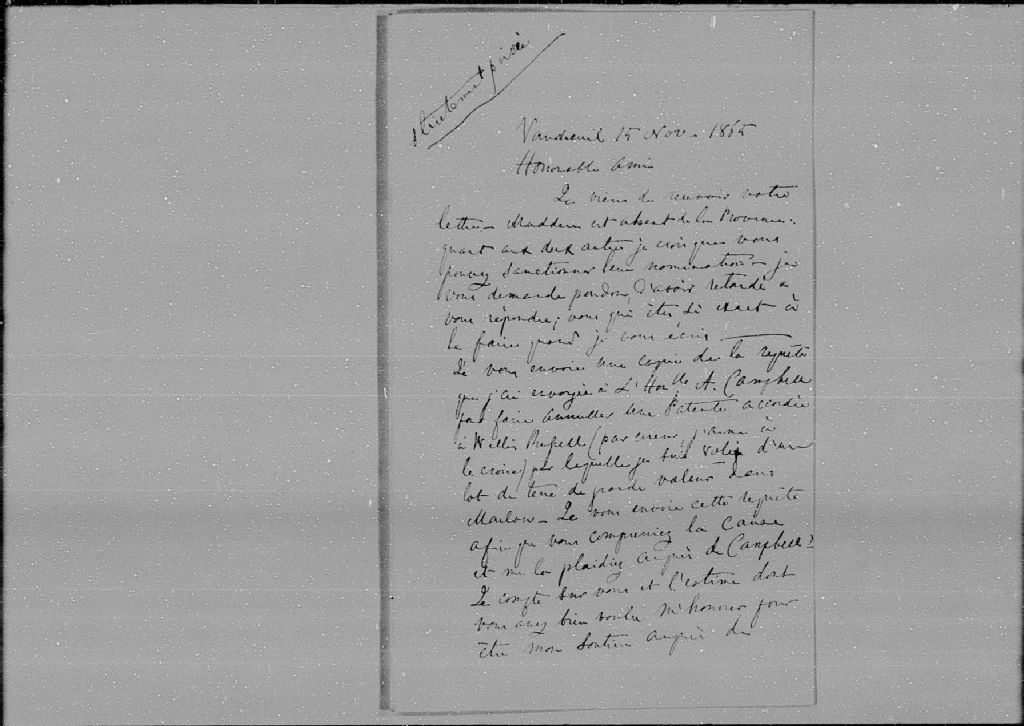 strictement privée
Vaudreuil 15 Nov. 1865
Honorable ami
Je viens de recevoir votre
lettre - Madden est absent de la Province.
quant aux deux autres je crois que vous
pouvez sanctionner leur nomination - je
vous demande pardon d'avoir retardé a
vous répondre; vous qui êtes si exact à
le faire quand je vous écris
Je vous envoie une copie de la requête
que j'ai envoyée à L'Honble A. Campbell
pour faire annuller une Patente accordée
à Willis (par erreur, j'aime à
le croire) par laquelle je suis volé d'un
lot de terre de grande valeur dans
Je vous envoie cette requête
afin que vous compreniez la Cause
et me la plaidiez auprès de Campbell
Je compte sur vous et l'estime dont
vous avez bien voulu m'honorer pour
Etre mon Soutien auprès de